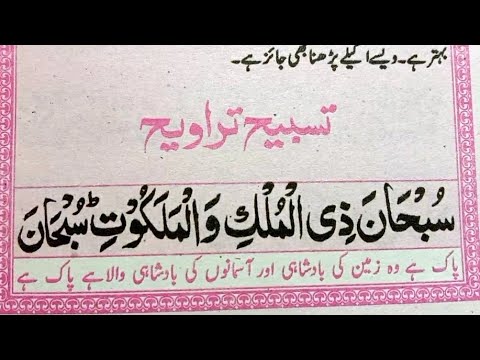 بہتر ہے۔ ویسے اکیلے پڑھنا بھی جائز ہے۔
تسبیح تراویح
سُبْحَانَ ذِی الْمُلْكِ وَالْمَلَكُوْتِ ؕ سُبْحَانَ
پاک ہے وہ زمین کی بادشاہی اور آسمانوں کی بادشاہی والا ہے پاک ہے